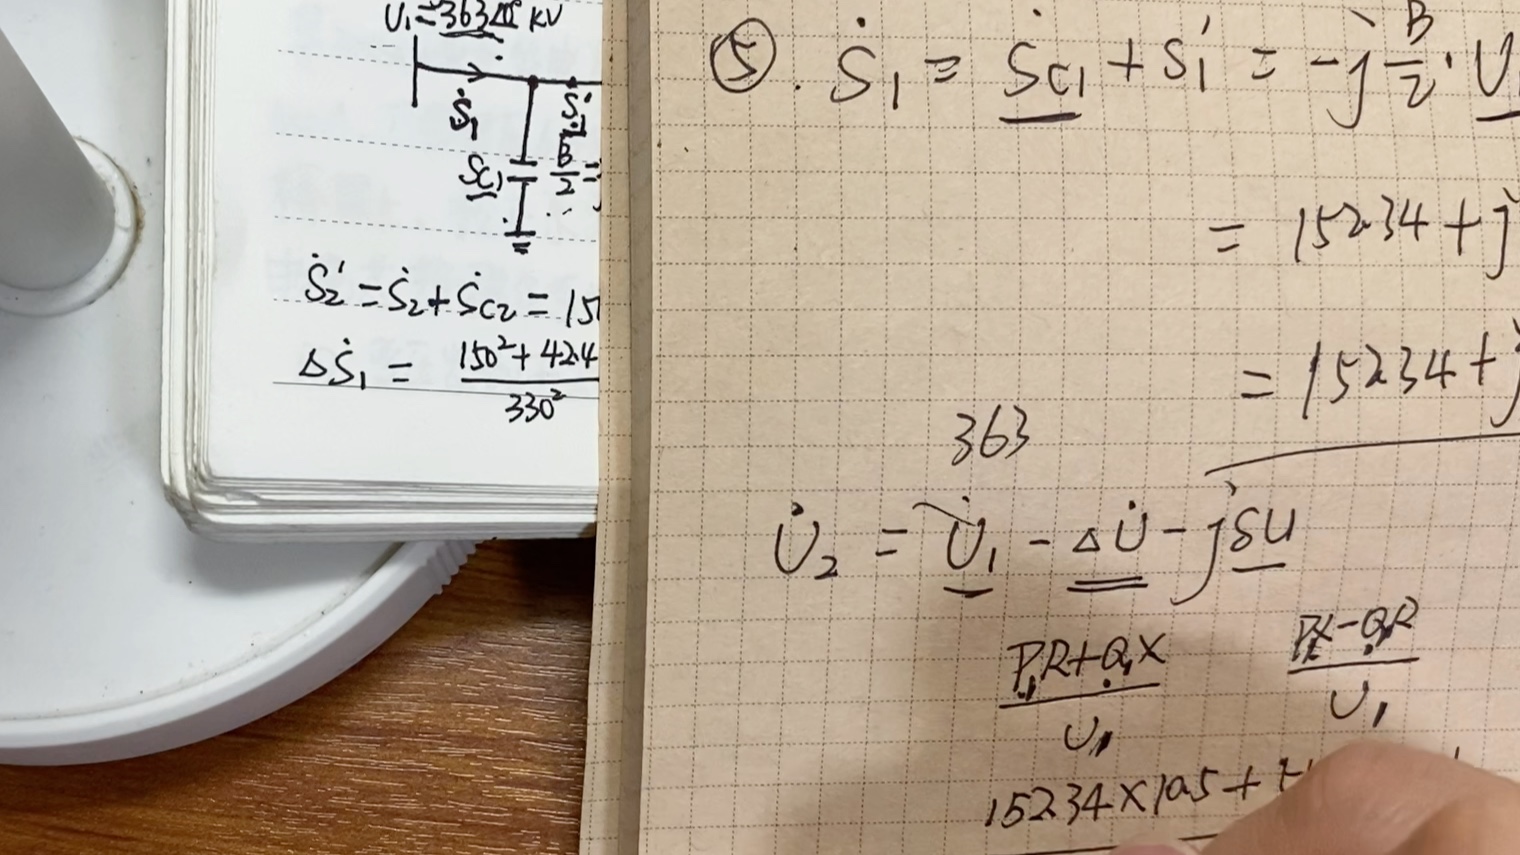 U̇₁=363∠0° kV
Ṡ₁
Ṡ₁'
S̲c₁
B/2 =
Ṡ₂' = Ṡ₂ + Ṡc₂ = 15
ΔṠ₁ = (150² + 42.4 / 330²
⑤. Ṡ₁ = Ṡc₁ + Ṡ₁' = -j B/2 · U₁
= 152.34 + j
= 152.34 + j
363
U̇₂ = U̇₁ - ΔU̇ - jδU
P₁R+Q₁X / U₁
P₁X-Q₁R / U₁
152.34×10.5+